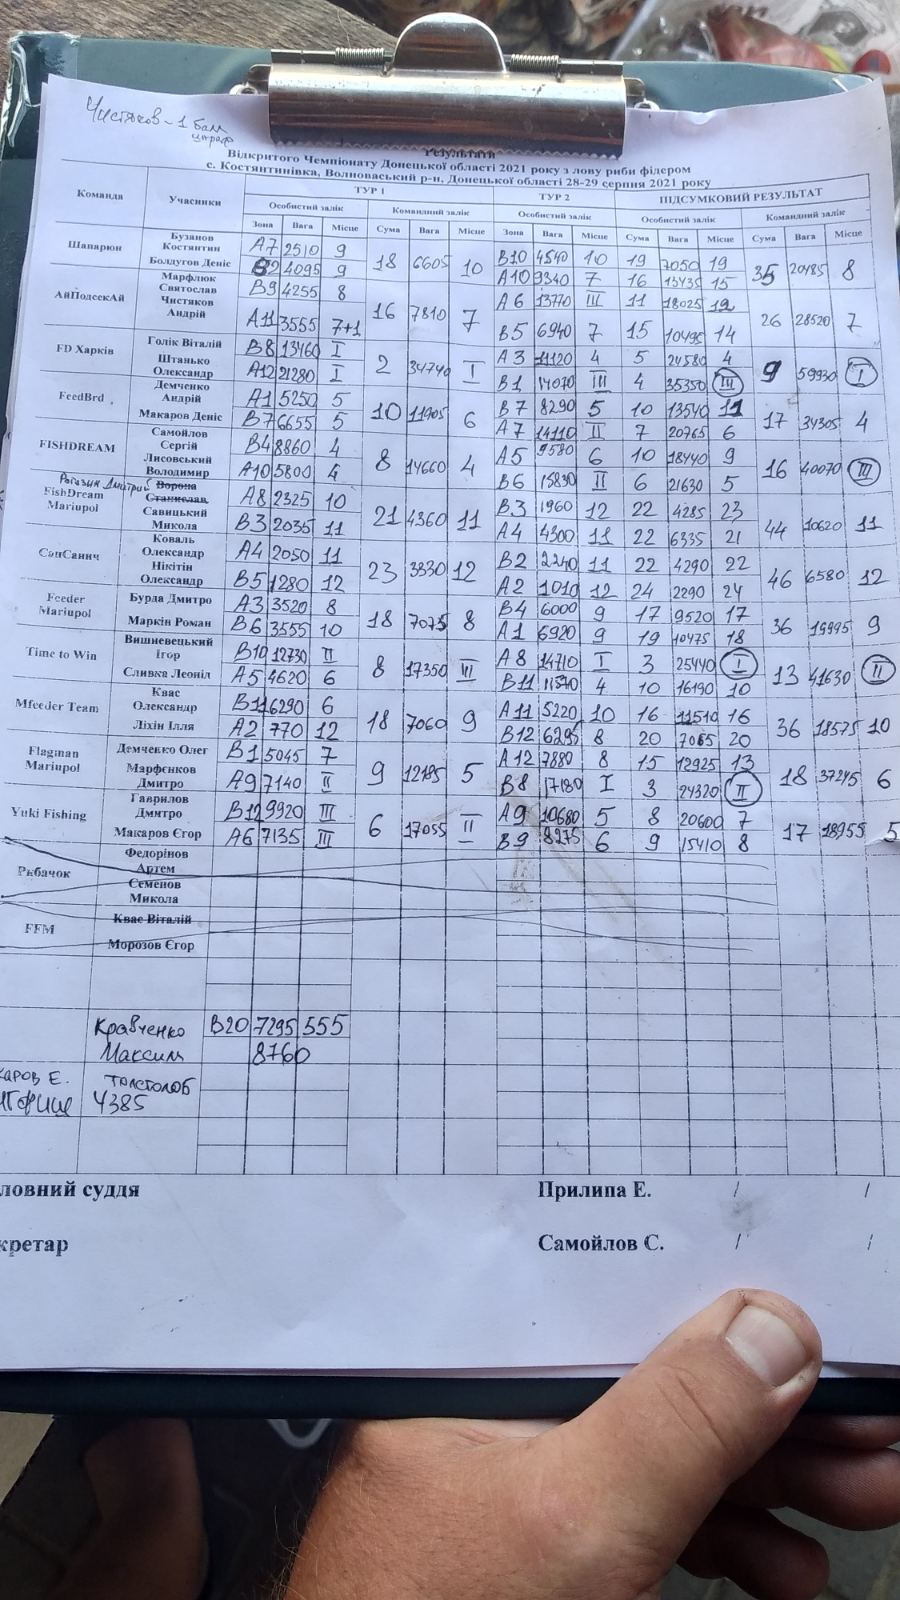 Чистяков - 1 бал
штраф
Результати
Відкритого Чемпіонату Донецької області 2021 року з лову риби фідером
с. Костянтинівка, Волноваський р-н, Донецької області 28-29 серпня 2021 року
Команда Учасники ТУР 1 ТУР 2 ПІДСУМКОВИЙ РЕЗУЛЬТАТ
Особистий залік Командний залік Особистий залік Особистий залік Командний залік
Зона Вага Місце Сума Вага Місце Зона Вага Місце Сума Вага Місце Сума Вага Місце
Шапарюн Бузанов Костянтин A7 2510 9 18 6605 10 B10 4540 10 19 7050 19 35 20485 8
Болдугов Деніс B2 4095 9 A10 9340 7 16 13435 15
АйПодсекАй Марфлюк Святослав B9 4255 8 16 7810 7 A6 13770 III 11 18025 12 26 28520 7
Чистяков Андрій A11 3555 7+1 B5 6940 7 15 10495 14
FD Харків Голік Віталій B8 13460 I 2 34740 I A3 11120 4 5 24580 4 9 59930 I
Штанько Олександр A12 21280 I B1 14070 III 4 35350 III
FeedBrd Демченко Андрій A1 5250 5 10 11905 6 B7 8290 5 10 13540 11 17 34305 4
Макаров Деніс B7 6655 5 A7 14110 II 7 20765 6
FISHDREAM Самойлов Сергій B4 8860 4 8 14660 4 A5 9580 6 10 18440 9 16 40070 III
Лисовський Володимир A10 5800 4 B6 15830 II 6 21630 5
FishDream Mariupol Рогазин Дмитрий Ворона Станислав A8 2325 10 21 4360 11 B3 1960 12 22 4285 23 44 10620 11
Савицький Микола B3 2035 11 A4 4300 11 22 6335 21
СанСанич Коваль Олександр A4 2050 11 23 3330 12 B2 2240 11 22 4290 22 46 6580 12
Нікітін Олександр B5 1280 12 A2 1010 12 24 2290 24
Feeder Mariupol Бурда Дмитро A3 3520 8 18 7075 8 B4 6000 9 17 9520 17 36 19995 9
Маркін Роман B6 3555 10 A1 6920 9 19 10475 18
Time to Win Вишневецький Ігор B10 12730 II 8 17350 III A8 14710 I 3 25440 I 13 41630 II
Сливка Леонід A5 4620 6 B11 11570 4 10 16190 10
Mfeeder Team Квас Олександр B11 6290 6 18 7060 9 A11 5220 10 16 11510 16 36 18575 10
Ліхін Ілля A2 770 12 B12 6295 8 20 7065 20
Flagman Mariupol Демченко Олег B1 5045 7 9 12185 5 A12 7880 8 15 12925 13 18 37245 6
Марфєнков Дмитро A9 7140 II B8 17180 I 3 24320 II
Yuki Fishing Гаврилов Дмитро B12 9920 III 6 17055 II A9 10680 5 8 20600 7 17 18955 5
Макаров Єгор A6 7135 III B9 8275 6 9 15410 8
Рибачок Федорінов Артем
Семенов Микола
FFM Квас Віталій
Морозов Єгор
Кравченко B20 7295 555
Максим 8760
каров Е. толстолоб
4385
ловний суддя Прилипа Е. / /
кретар Самойлов С. / /